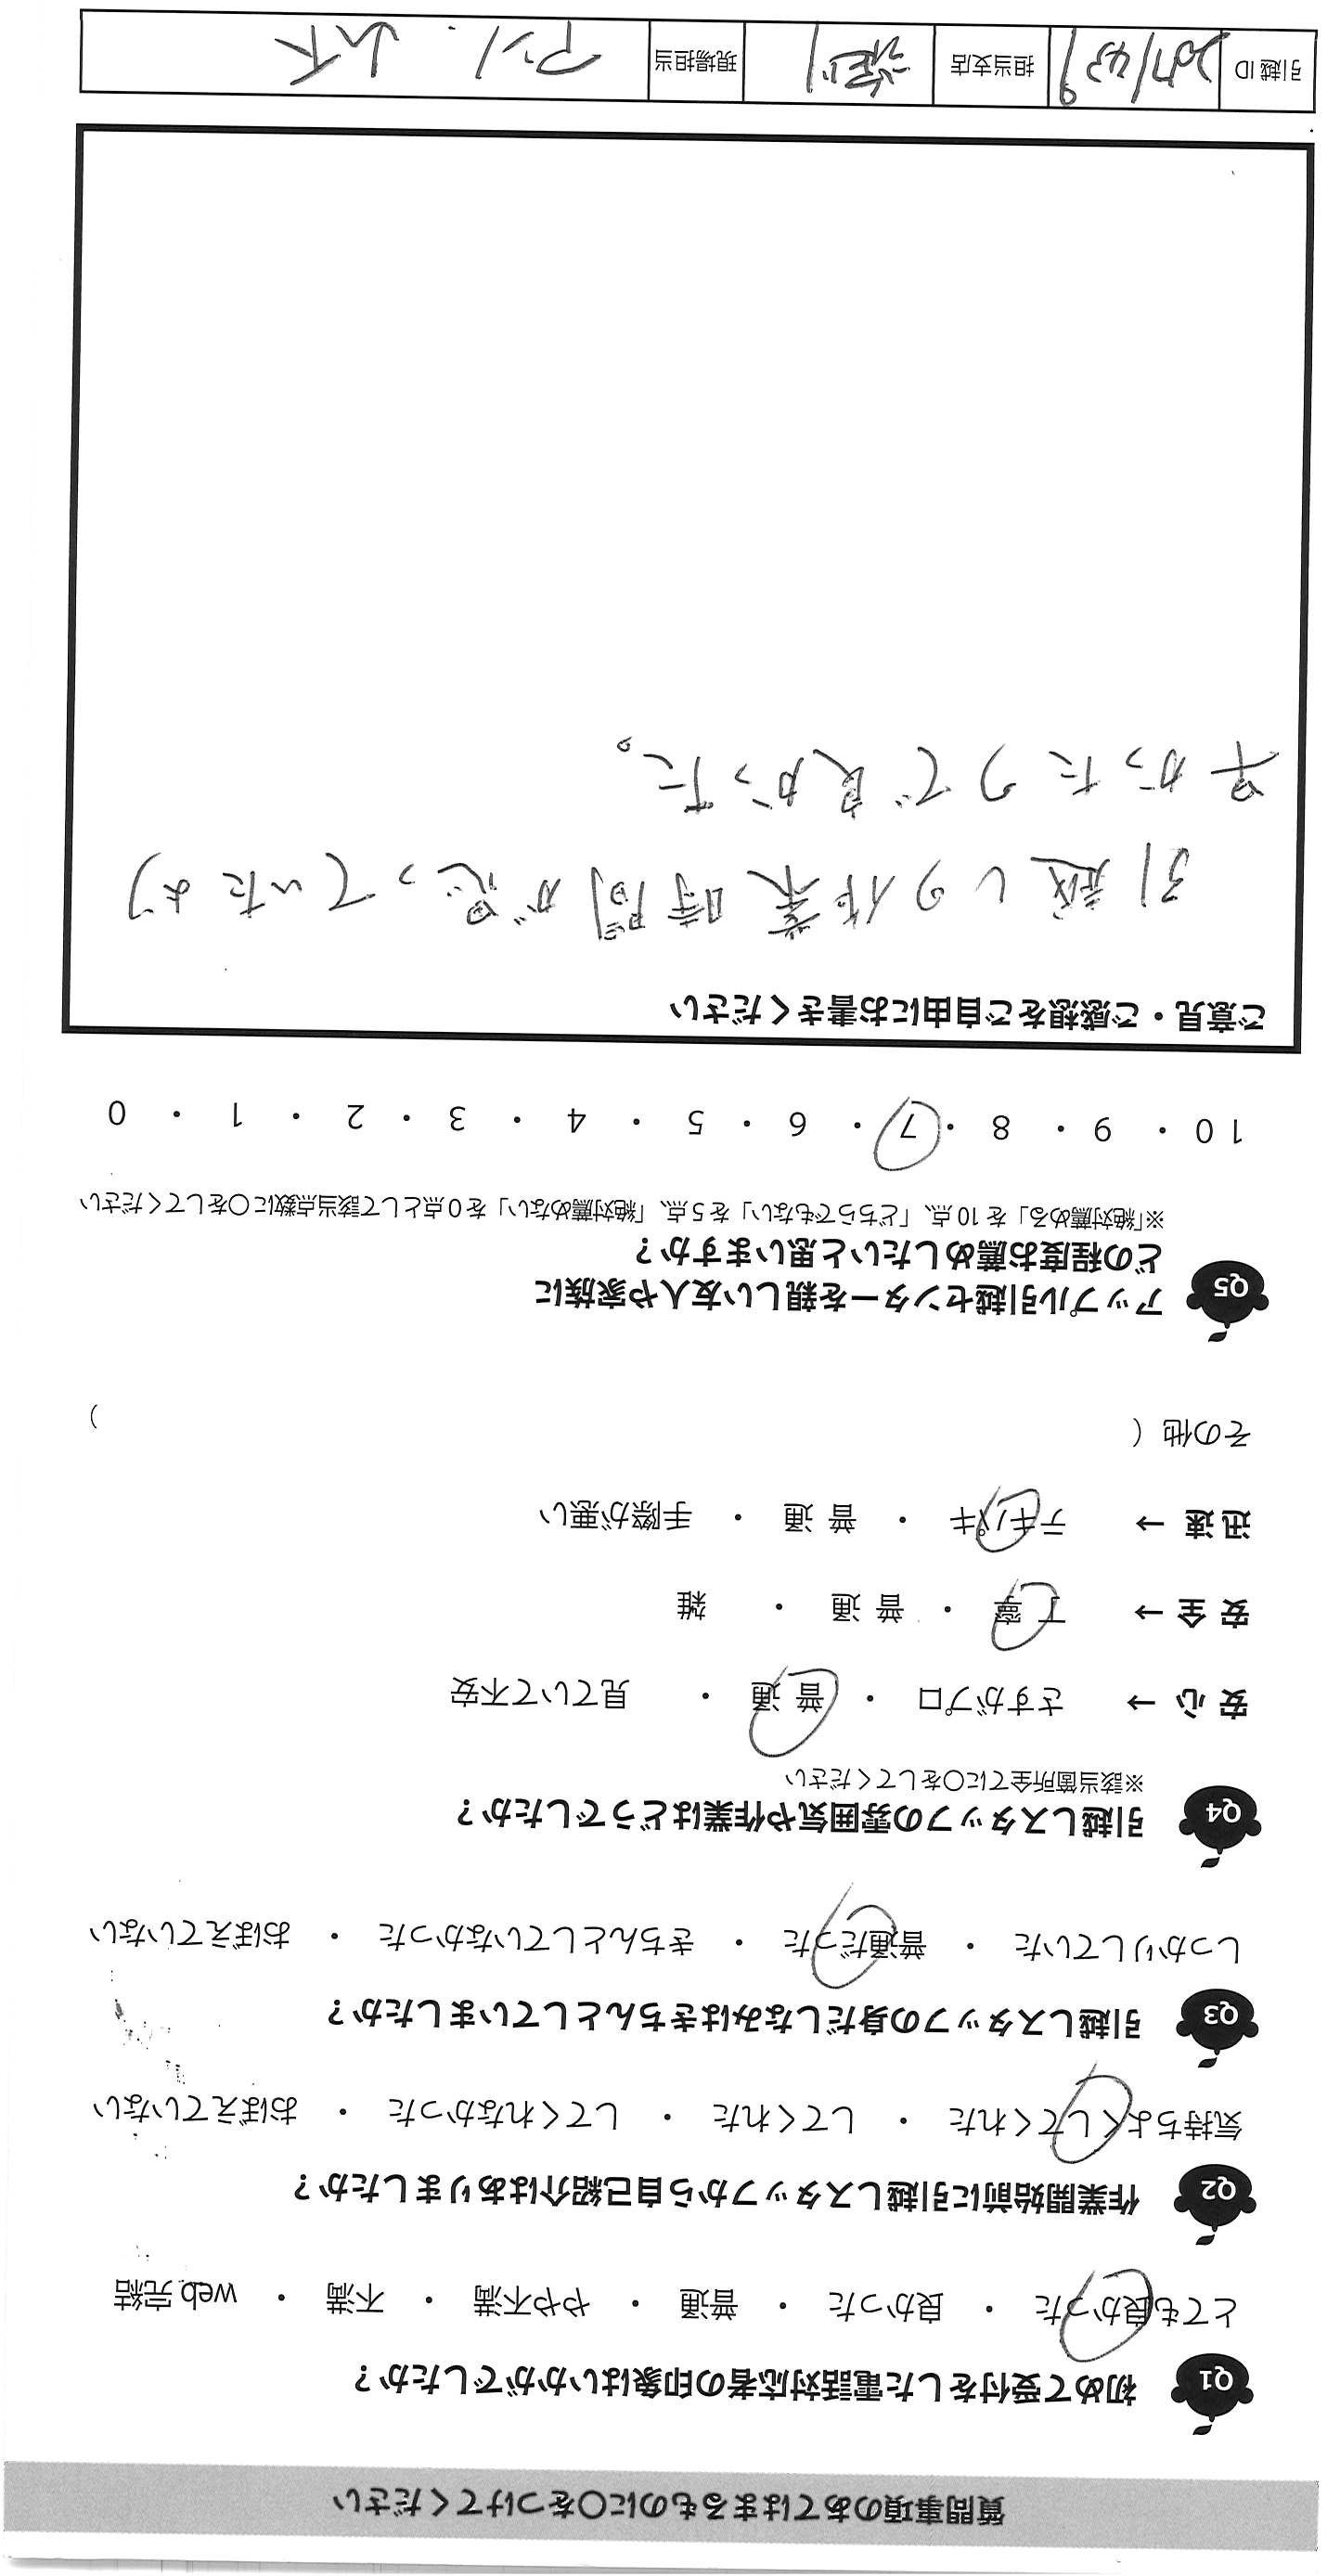 質問事項のあてはまるものに〇をつけてください
Q1 初めて受付をした電話対応者の印象はいかがでしたか？
とても良かった ・ 良かった ・ 普通 ・ やや不満 ・ 不満 ・ web完結
Q2 作業開始前に引越しスタッフから自己紹介はありましたか？
気持ちよくしてくれた ・ してくれた ・ してくれなかった ・ おぼえていない
Q3 引越しスタッフの身だしなみはきちんとしていましたか？
しっかりしていた ・ 普通だった ・ きちんとしていなかった ・ おぼえていない
Q4 引越しスタッフの雰囲気や作業はどうでしたか？
※該当箇所全てに〇をしてください
安心 → さすがプロ ・ 普通 ・ 見ていて不安
安全 → 丁寧 ・ 普通 ・ 雑
迅速 → テキパキ ・ 普通 ・ 手際が悪い
その他（ ）
Q5 アップル引越センターを親しい友人や家族に
どの程度お薦めしたいと思いますか？
※「絶対薦める」を10点、「どちらでもない」を5点、「絶対薦めない」を0点として該当点数に〇をしてください
10 ・ 9 ・ 8 ・ 7 ・ 6 ・ 5 ・ 4 ・ 3 ・ 2 ・ 1 ・ 0
ご意見・ご感想をご自由にお書きください
引越しの作業時間が思っていたより
早かったので良かった。
引越ID 担当支店 現場担当 山下